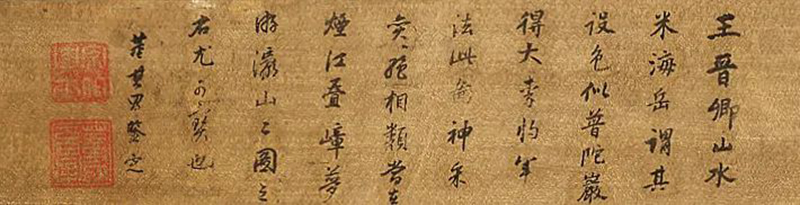 王晉卿山水
米海岳謂其
設色似普陀巖
得大李將軍
法此卷神采
奕奕絕相類當在
煙江疊嶂夢
游瀛山二圖之
右尤可寶也
董其昌鑒定